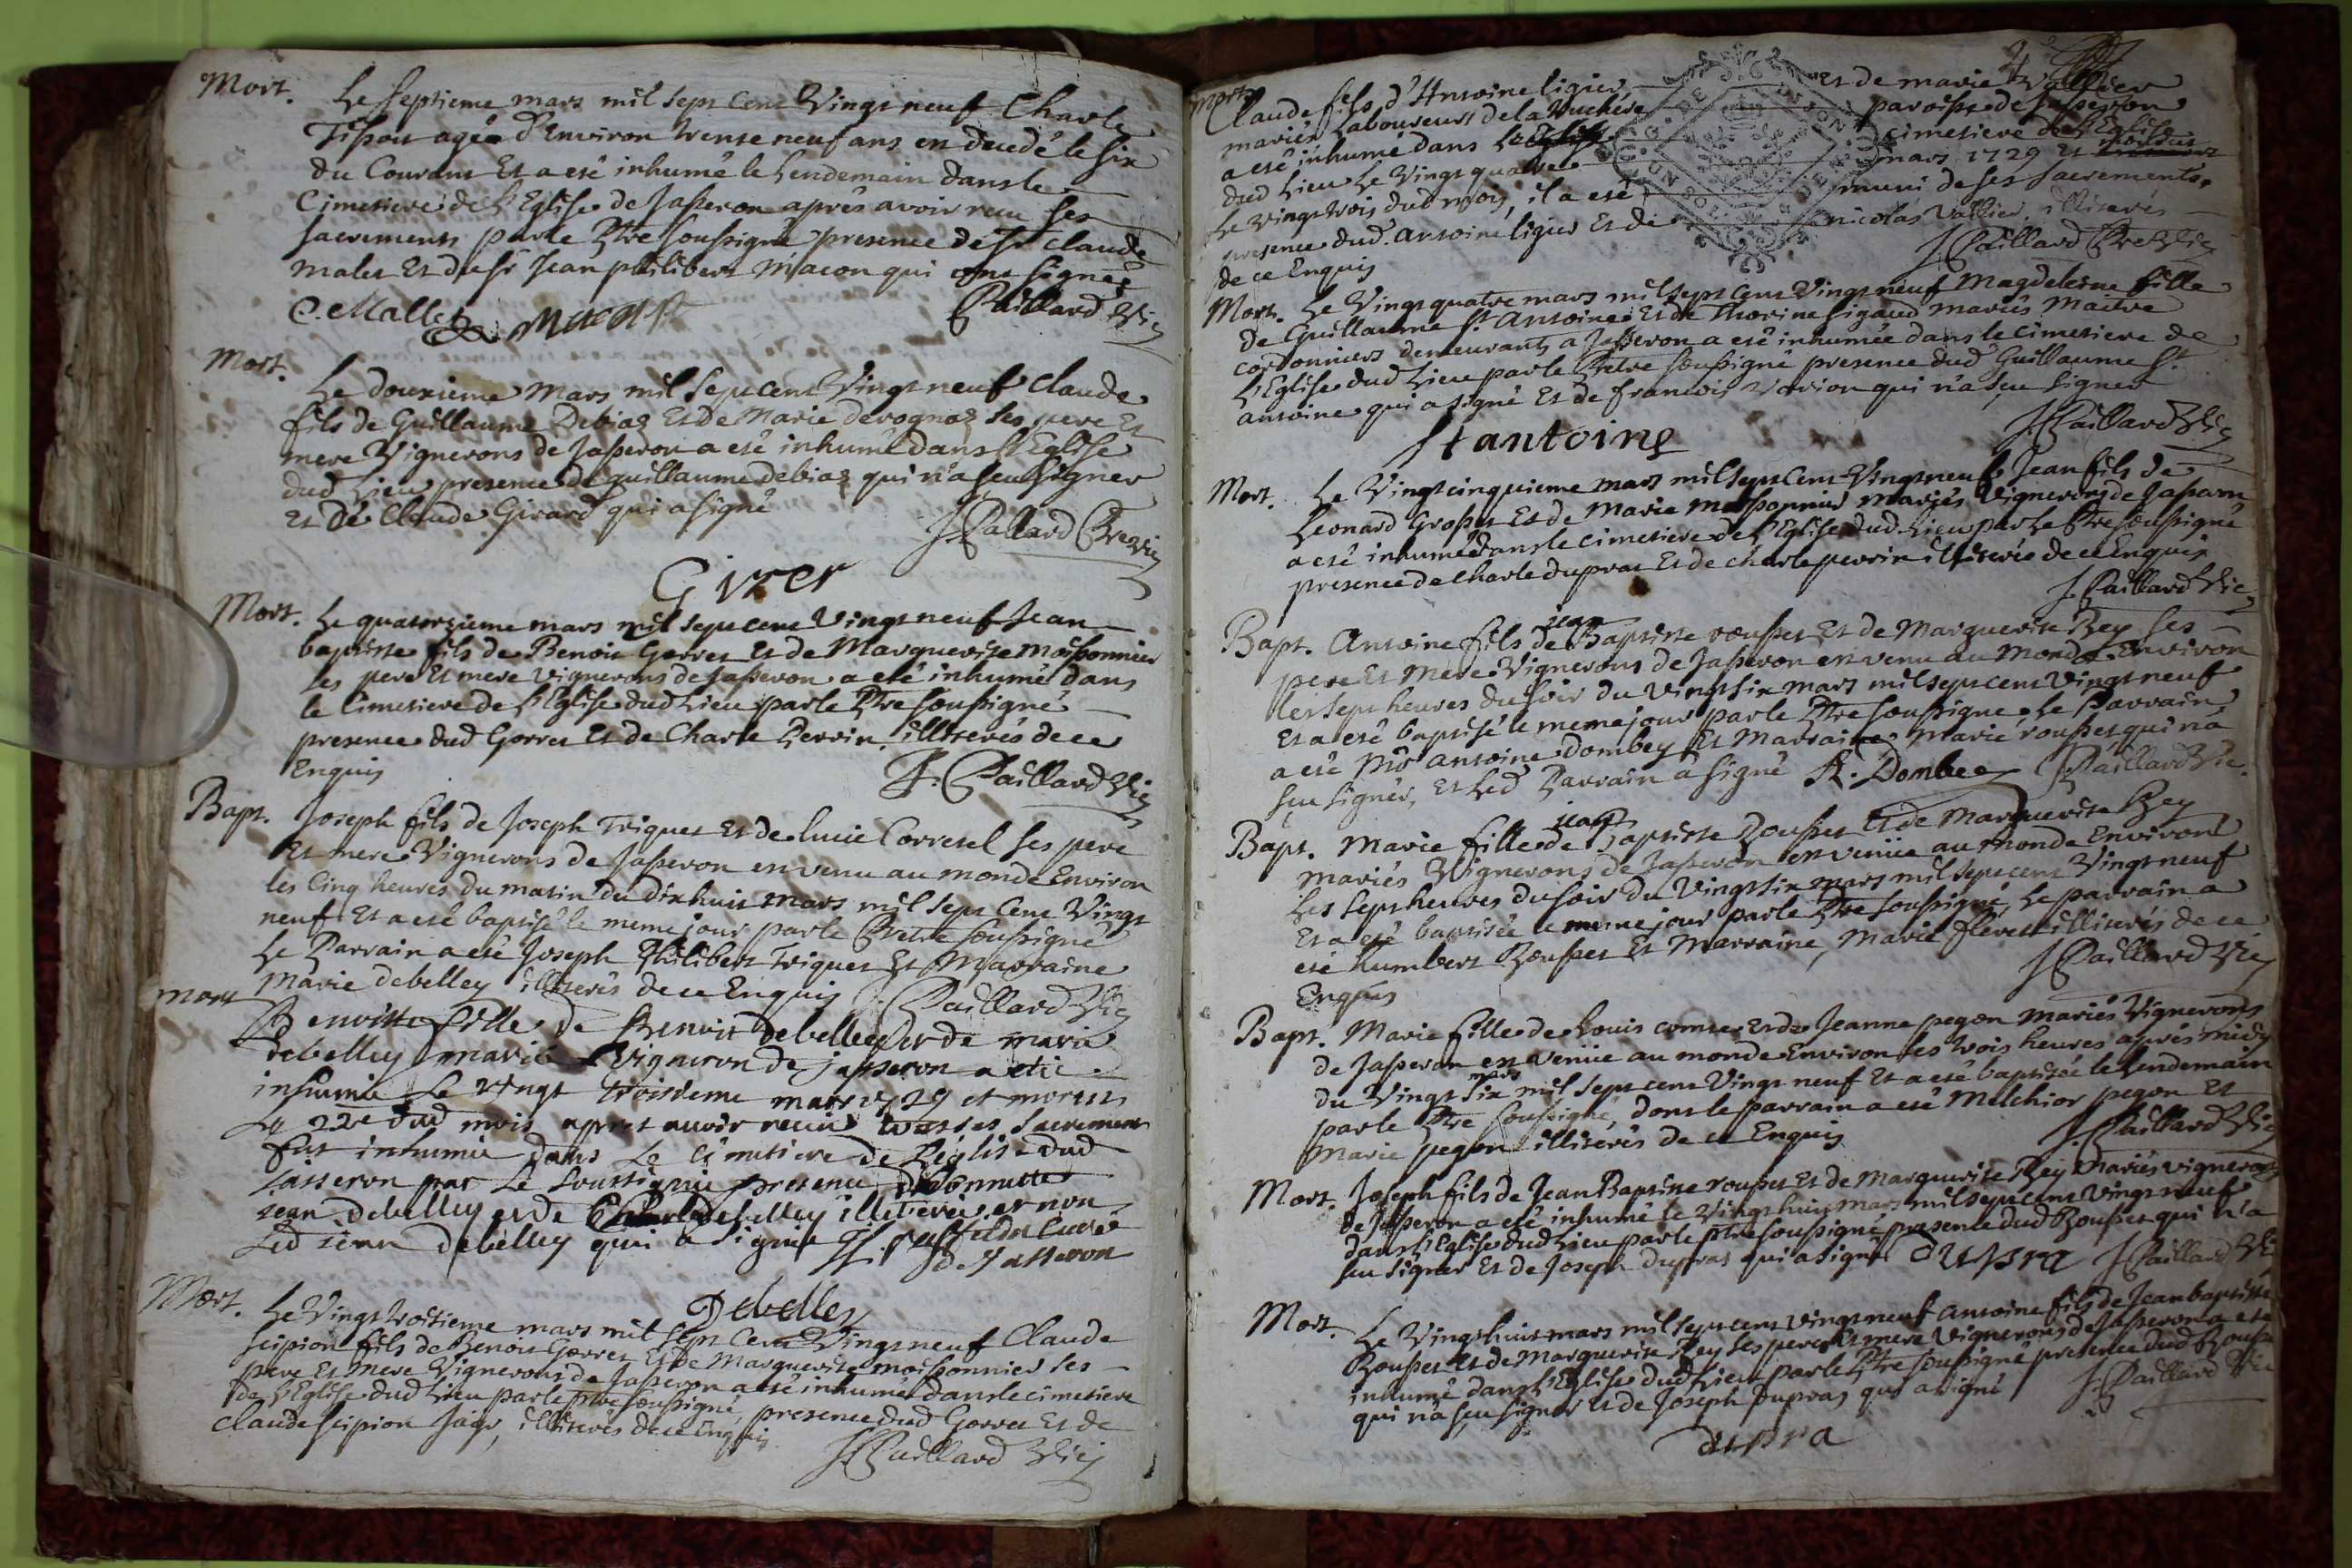 Mort. Le septieme mars mil sept cent Vingt neuf Charle
agée d'Environ trente neuf ans en decedé le six
du Courant Et a esté inhumé le Lendemain dans le
Cimetiere de L'Eglise de Jasseron apres avoir receu ses
sacrements par le Ptre soussigné presence de Sr claude
malet Et du Sr Jean philibert Macon qui ont signes
C Mallet Macon Paillard Vic
Mort. Le douzieme Mars mil Sept cent Vingt neuf Claude
fils de Guillaume Debias Et de Marie devognas ses pere Et
mere Vignerons de Jasseron a esté inhumé dans L'Eglise
dud Lieu presence de guillaume debias qui n'a sçeu signer
Et De Claude Girard qui a signé
J. Pallard Ptre Vic
Girer
Mort. Le quatorzieme mars mil sept cent Vingt neuf Jean
baptiste fils de Benoit Gorret Et de Marguerite Moissonnier
ses pere Et mere vignerons de Jasseron a esté inhumé dans
le Cimetiere de L'Eglise dud Lieu par le Ptre soussigné
presence dud Gorret Et de Charle Perrin illiterés de ce
Enquis
J. Paillard Vic
Bapt. Joseph fils de Joseph Triquet Et de Lucie Corretel ses pere
Et mere Vignerons de Jasseron en venu au monde Environ
les Cinq heures du matin du dixhuit mars mil sept Cent Vingt
neuf Et a esté baptisé le meme jour par le Pretre soussigné
Le Parrain a esté Joseph Philibert Triquet Et Marraine
Marie debelley illiterés de ce Enquis J. Paillard Vic
mort Benoitte fille de Benoit debelley et de marie
debelley mariés vigneron de jasseron a eté
inhumée Le vingt troisieme mars 1729 et morte
Le 22e dud mois apres avoir receu tous ses sacrements
fut inhumée dans Le Cimetiere de L'église dud
Jasseron par Le soussigné presence
jean debelley et de debelley illiterés et non
Led jean debelley qui a signé
curé
de Jasseron
Debelley
Mort. Le Vingt troisieme mars mil sept Cent Vingt neuf Claude
scipion fils de Benoit Gorret Et de Marguerite moissonnier ses
pere Et Mere Vignerons de Jasseron a esté inhumé dans le cimetiere
de L'Eglise dud Lieu par le ptre soussigné, presence dud Gorret Et de
Claude scipion illiterés de ce Enquis
J. Paillard Vic
mort Claude fils d'Antoine ligier Et de marie Vallier
mariés Laboureurs de la Vuchere paroisse de Jasseron
a esté inhumé dans Le cimetiere de L'Eglise
dud Lieu Le Vingt quatre mars 1729 Et
Le Vingt trois dud mois, il a esté muni de ses sacrements,
presence dud. Antoine ligier Et de nicolas Vallier, illiterés
de ce Enquis
J. Paillard Ptre Vic
Mort. Le Vingt quatre mars mil sept Cent Vingt neuf Magdeleine fille
de Guillaume St. Antoine Et de Thorine sigaud mariés Maitre
cordonniers demeurants a Jasseron a esté inhumée dans le cimetiere de
L'Eglise dud Lieu par le Pretre soussigné presence dud Guillaume St.
antoine qui a signé Et de francois Varion qui n'a sçeu signer
J. Paillard Vic
St antoine
Mort. Le Vingt cinquieme mars mil sept Cent Vingt neuf Jean fils de
Leonard Grosset Et de Marie massonnier mariés Vignerons de Jasseron
a esté inhumé dans le cimetiere de L'Eglise dud Lieu par le Ptre soussigné
presence de Charle dupras Et de charle perrin illiterés de ce Enquis
J. Paillard Vic
Bapt. Antoine fils de jean Baptiste rousset Et de Marguerite Rey ses
pere Et Mere Vignerons de Jasseron en venu au Monde Environ
Les sept heures du soir du Vingt six mars mil sept cent Vingt neuf
Et a esté baptisé le meme jour par le Ptre soussigné Le Parrain
a esté Mr. Antoine Dombey Et Marraine Marie rousset qui n'a
sçeu signer, Et Led Parrain a signé A. Dombey J. Paillard Vic.
Bapt. Marie fille de jean Baptiste Rousset Et de Marguerite Rey
mariés Vignerons de Jasseron en venüe au monde Environ
Les sept heures du soir du Vingt six mars mil sept cent Vingt neuf
Et a esté baptisée le meme jour par le Ptre soussigné, Le parrain a
esté humbert Rousset Et Marraine, Marie flevet illiterés de ce
Enquis J. Paillard Vic
Bapt. Marie fille de Louis comte Et de Jeanne pegon Mariés Vignerons
de Jasseron en Venüe au monde Environ les trois heures apres midy
du Vingt six mars mil sept cent Vingt neuf Et a esté baptisée le Lendemain
par le Ptre soussigné, dont le parrain a esté Melchior pegon Et
Marie pegon illiterés de ce Enquis J. Paillard Vic
Mort. Joseph fils de Jean Baptiste rousset Et de Marguerite Rey Mariés vignerons
de Jasseron a esté inhumé le Vingt huit mars mil sept cent Vingt neuf
dans L'Eglise dud Lieu par le ptre soussigné presence dud Rousset qui n'a
sçu signer Et de Joseph dupras qui a signé Dupra J. Paillard Vic
Mort. Le Vingt huit mars mil sept cent Vingt neuf Antoine fils de Jean baptiste
Rousset Et de Marguerite Rey ses pere Et mere Vignerons de Jasseron a esté
inhumé dans L'Eglise dud Lieu par le Ptre soussigné presence dud Rousset
qui n'a sçeu signer Et de Joseph Dupras qui a signé J. Paillard Vic
dupra